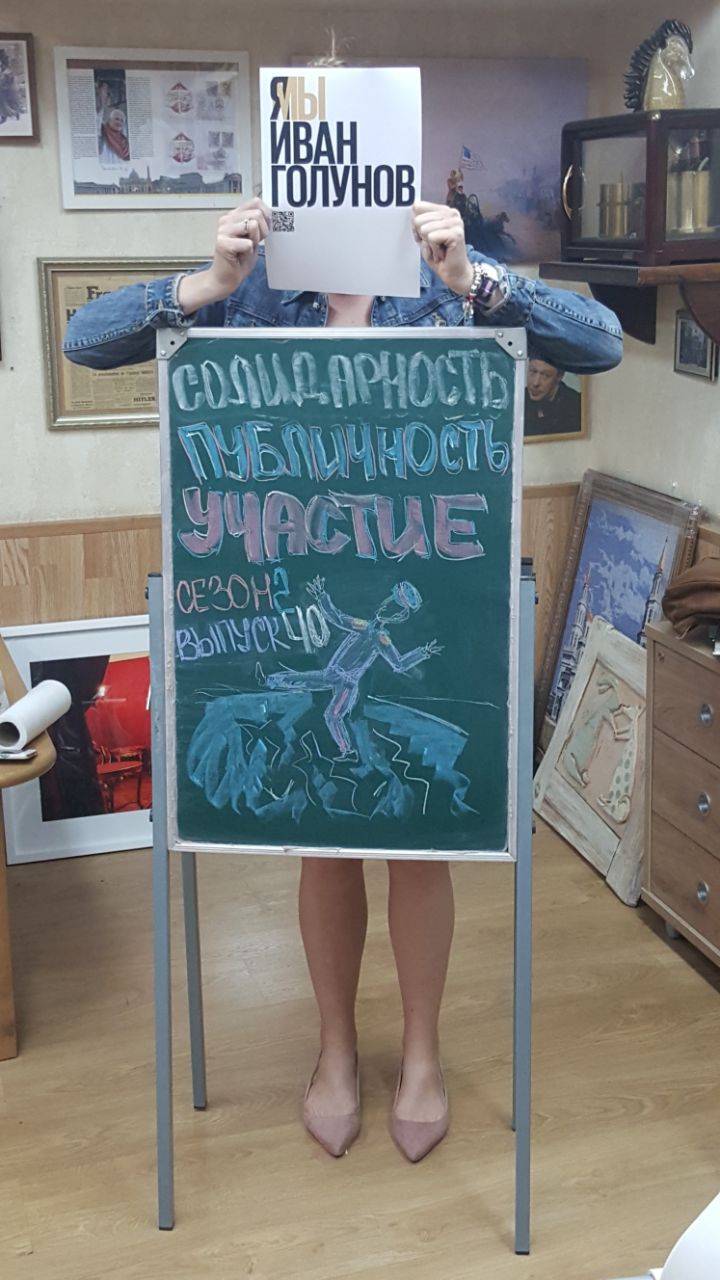 ЯМЫ
ИВАН
ГОЛУНОВ
HITLER
СОЛИДАРНОСТЬ
ПУБЛИЧНОСТЬ
УЧАСТИЕ
СЕЗОН 2
ВЫПУСК 40